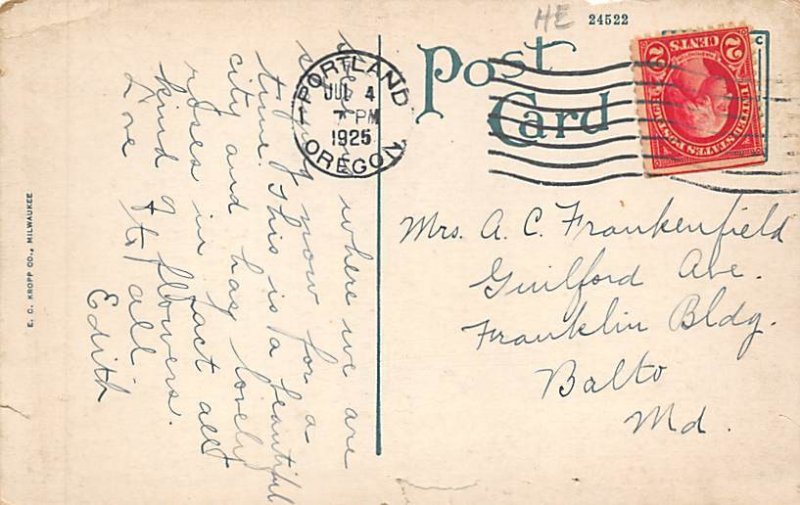 HE
24522
Post
Card
C
PORTLAND
JUL 4
7 PM
1925
OREGON
1
2 CENTS 2
UNITED STATES POSTAGE
where we are
now for a
time. This is a beautiful
city and has lovely
roses in fact all
kind of flowers.
Love to all
Edith
Mrs. A. C. Frankenfield
Guilford Ave.
Franklin Bldg.
Balto
Md.
E. C. KROPP CO., MILWAUKEE